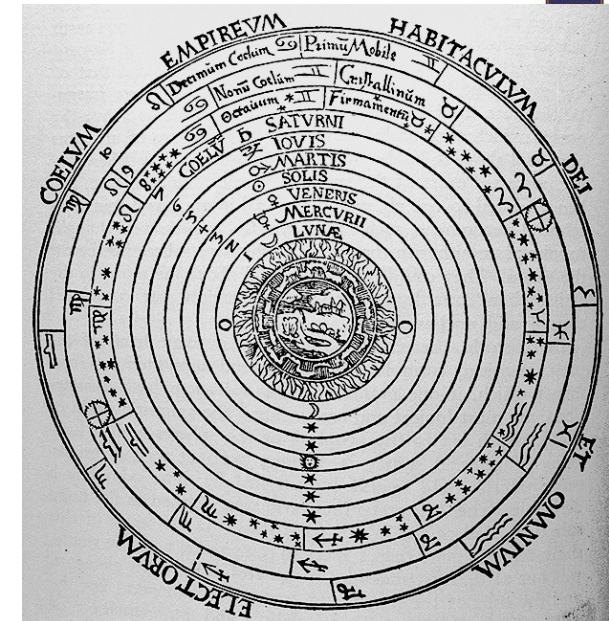 COELVM EMPIREVM HABITACVLVM DEI ET OMNIVM ELECTORVM
Decimum Coelum Primũ Mobile
Nonũ Coelũm Cristallinũm
Octauum Firmamentũ
COELṼ SATVRNI
IOVIS
MARTIS
SOLIS
VENERIS
MERCVRII
LVNÆ
9
8
7
6
5
4
3
2
1